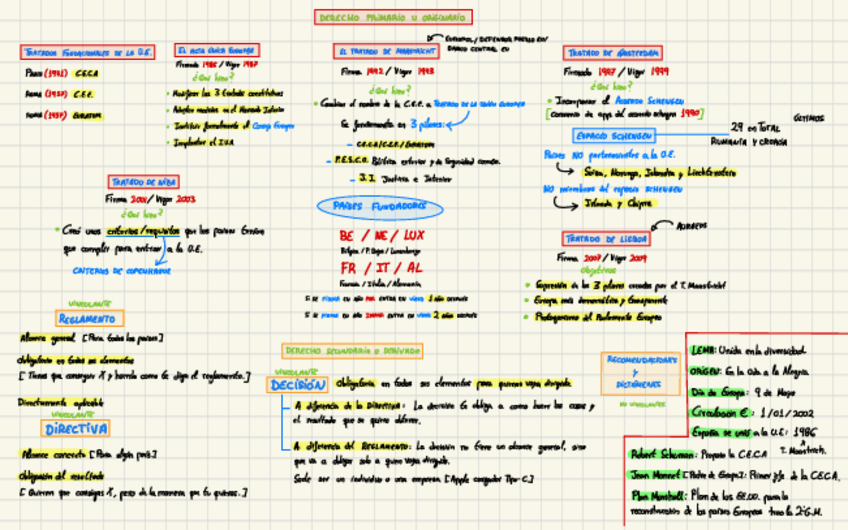 DERECHO PRIMARIO U ORIGINARIO
TRATADOS FUNDACIONALES DE LA U.E.
París (1951) C.E.C.A
Roma (1957) C.E.E.
Roma (1957) EURATOM
EL ACTA ÚNICA EUROPEA
Firmado 1986 / Vigor 1987
¿Qué hizo?
• Modificar los 3 tratados constitutivos
• Adoptar medidas en el Mercado Interior
• Instituir formalmente el Consejo Europeo
• Implantar el I.V.A
EL TRATADO DE MAASTRICHT
BANCO CENTRAL EU
Firma 1992 / Vigor 1993
¿Qué hizo?
• Cambiar el nombre de la C.E.E. a TRATADO DE LA UNIÓN EUROPEA
Se fundamenta en 3 pilares:
- C.E.C.A/C.E.E./EURATOM
- P.E.S.C.A. Política exterior y de Seguridad común.
- J.I. Justicia e Interior
TRATADO DE ÁMSTERDAM
Firmado 1997 / Vigor 1999
¿Qué hizo?
• Incorporar el ACUERDO SCHENGEN
[Convenio de apl. del acuerdo schengen 1990]
ESPACIO SCHENGEN
29 en TOTAL
ÚLTIMOS
RUMANÍA Y CROACIA
Países NO pertenecientes a la U.E.
Suiza, Noruega, Islandia y Liechtenstein
NO miembros del espacio SCHENGEN
Irlanda y Chipre
TRATADO DE NIZA
Firma 2001 / Vigor 2003
¿Qué hizo?
• Creó unos criterios/requisitos que los países tienen
que cumplir para entrar a la U.E.
CRITERIOS DE COPENHAGUE
PAÍSES FUNDADORES
BE / NE / LUX
Bélgica / P. Bajos / Luxemburgo
FR / IT / AL
Francia / Italia / Alemania
TRATADO DE LISBOA
Firma 2007 / Vigor 2009
Objetivos
• Supresión de los 3 pilares creados por el T. Maastricht
• Europa más democrática y transparente
• Protagonismo del Parlamento Europeo
VINCULANTE
REGLAMENTO
Alcance general [Para todos los países]
Obligatorio en todos sus elementos
[Tienes que conseguir X y hacerlo como te diga el reglamento.]
Directamente aplicable
VINCULANTE
DIRECTIVA
Alcance concreto [Para algún país]
Obligación del resultado
[Quieren que consigas X, pero de la manera que tu quieras.]
DERECHO SECUNDARIO O DERIVADO
VINCULANTE
DECISIÓN Obligatoria en todos sus elementos para quienes vaya dirigida
A diferencia de la DIRECTIVA: La decisión te obliga a como hacer las cosas y
el resultado que se quiere obtener.
A diferencia del REGLAMENTO: La decisión no tiene un alcance general, sino
que va a obligar solo a quien vaya dirigida.
Suele ser un individuo o una empresa [Apple cargador Tipo-C.]
RECOMENDACIONES
Y
DICTÁMENES
NO VINCULANTES
LEMA: Unida en la diversidad
ORIGEN: En la Oda a la Alegría
Día de Europa: 9 de Mayo
Circulación €: 1/01/2002
España se unió a la U.E: 1986
T. Maastrich.
Robert Schuman: Propuso la C.E.C.A
Jean Monnet [Padre de Europa]: Primer jefe de la C.E.C.A.
Plan Marshall: Plan de los EE.UU. para la
reconstrucción de los países Europeos tras la 2ªG.M.